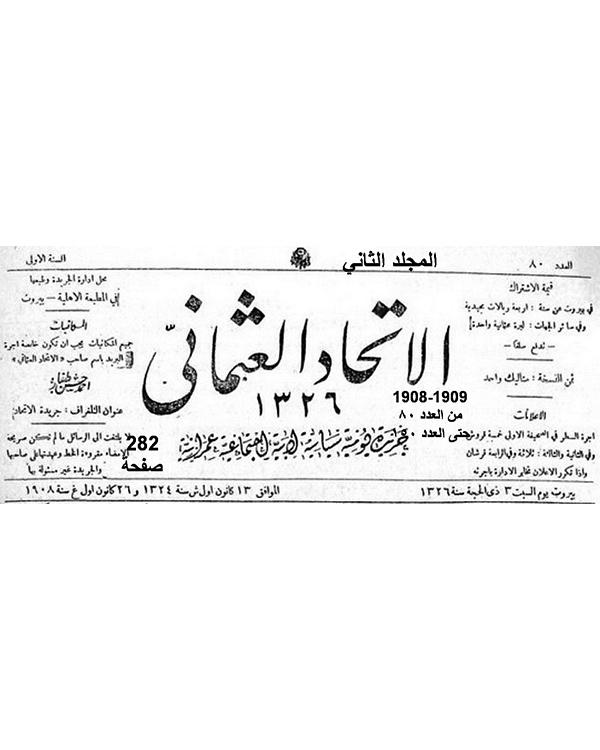 العدد ٨٠
المجلد الثاني
السنة الاولى
قيمة الاشتراك
في بيروت عن سنة : اربعة ريالات مجيدية
وفي سائر الجهات : ليرة عثمانية واحدة
— تدفع سلفاً —
ثمن النسخة : متاليك واحد
الاعلانات
اجرة السطر في الصحيفة الاولى خمسة قروش
وفي الثانية والثالثة : ثلاثة وفي الرابعة قرشان
واذا تكرر الاعلان تخابر الادارة باجرته
الاتحاد العثماني
١٣٢٦
1908-1909
من العدد ٨٠
حتى العدد
جريدة يومية سياسية ادبية اجتماعية عمرانية
محل ادارة الجريدة وطبعها
في المطبعة الاهلية — بيروت
المكاتبات
جميع المكاتبات يجب ان تكون خالصة اجرة
البريد باسم صاحب «الاتحاد العثماني»
احمد حسن طباره
عنوان التلغراف : جريدة الاتحاد
لا يلتفت الى الرسائل ما لم تكن صريحة
الامضاء مقروءة الخط وعهدتها على صاحبها
والجريدة غير مسئولة بها
282
صفحة
بيروت يوم السبت ٣ ذي الحجة سنة ١٣٢٦
الموافق ١٣ كانون اول ش سنة ١٣٢٤ و ٢٦ كانون اول غ سنة ١٩٠٨